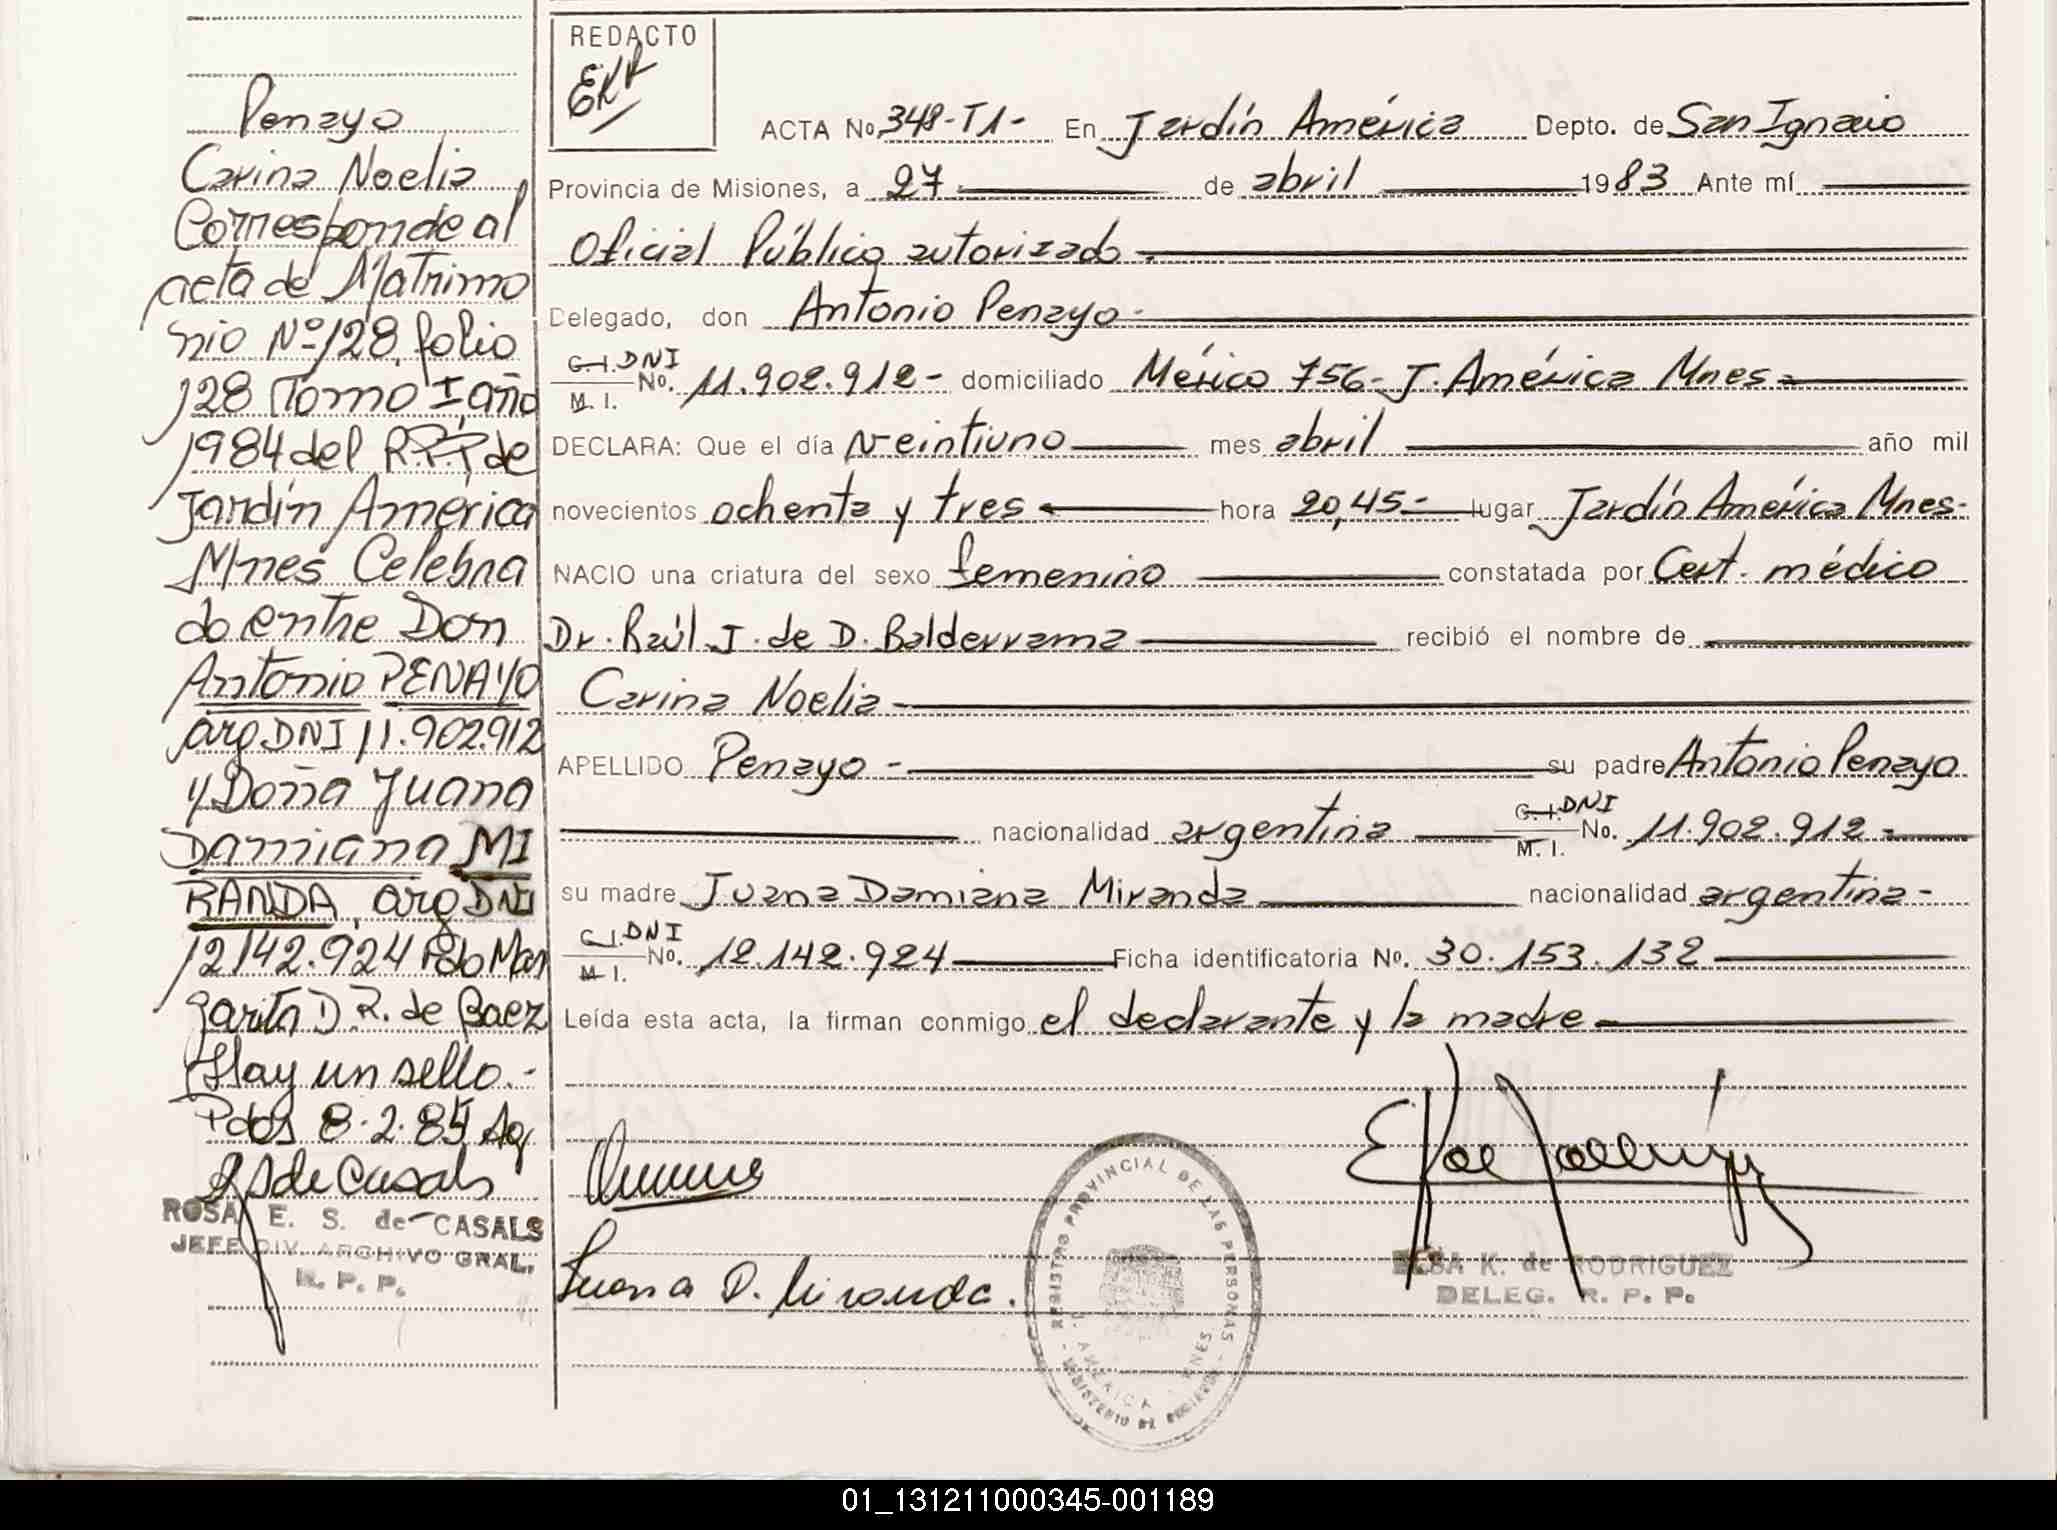 Penayo
Carina Noelia
Corresponde al
acta de Matrimo
nio Nº 128, folio
128 Tomo I año
1984 del R.P.P de
Jardín América
Mnes Celebra
do entre Don
Antonio PENAYO
arg DNI 11.902.912
y Doña Juana
Damiana MI
RANDA, arg DNI
12142.924 Fdo Mar
garita D.R. de Baez
Hay un sello.-
Pdas 8.2.85
R S de Casals
ROSA E. S. de CASALS
JEFE DIV. ARCHIVO GRAL.
R. P. P.
REDACTO
EKR
ACTA No. 348-T1- En Jardín América Depto. de San Ignacio
Provincia de Misiones, a 27 de abril 1983 Ante mí
Oficial Público autorizado.
Delegado, don Antonio Penayo-
C.I. DNI
M. I. No. 11.902.912- domiciliado México 756- J. América Mnes-
DECLARA: Que el día veintiuno mes abril año mil
novecientos ochenta y tres hora 20,45- lugar Jardín América Mnes-
NACIO una criatura del sexo femenino constatada por Cert. médico
Dr. Raúl J. de D. Balderrama recibió el nombre de
Carina Noelia-
APELLIDO Penayo - su padre Antonio Penayo
nacionalidad argentina C.I. DNI M. I. No. 11.902.912-
su madre Juana Damiana Miranda nacionalidad argentina-
C.I. DNI
M. I. No. 12.142.924 Ficha identificatoria No. 30.153.132
Leída esta acta, la firman conmigo el declarante y la madre-
Juana D. Miranda.
REGISTRO PROVINCIAL DE LAS PERSONAS
MINISTERIO DE GOBIERNO
J. AMERICA MNES
ELSA K. de RODRIGUEZ
DELEG. R. P. P.
01_131211000345-001189